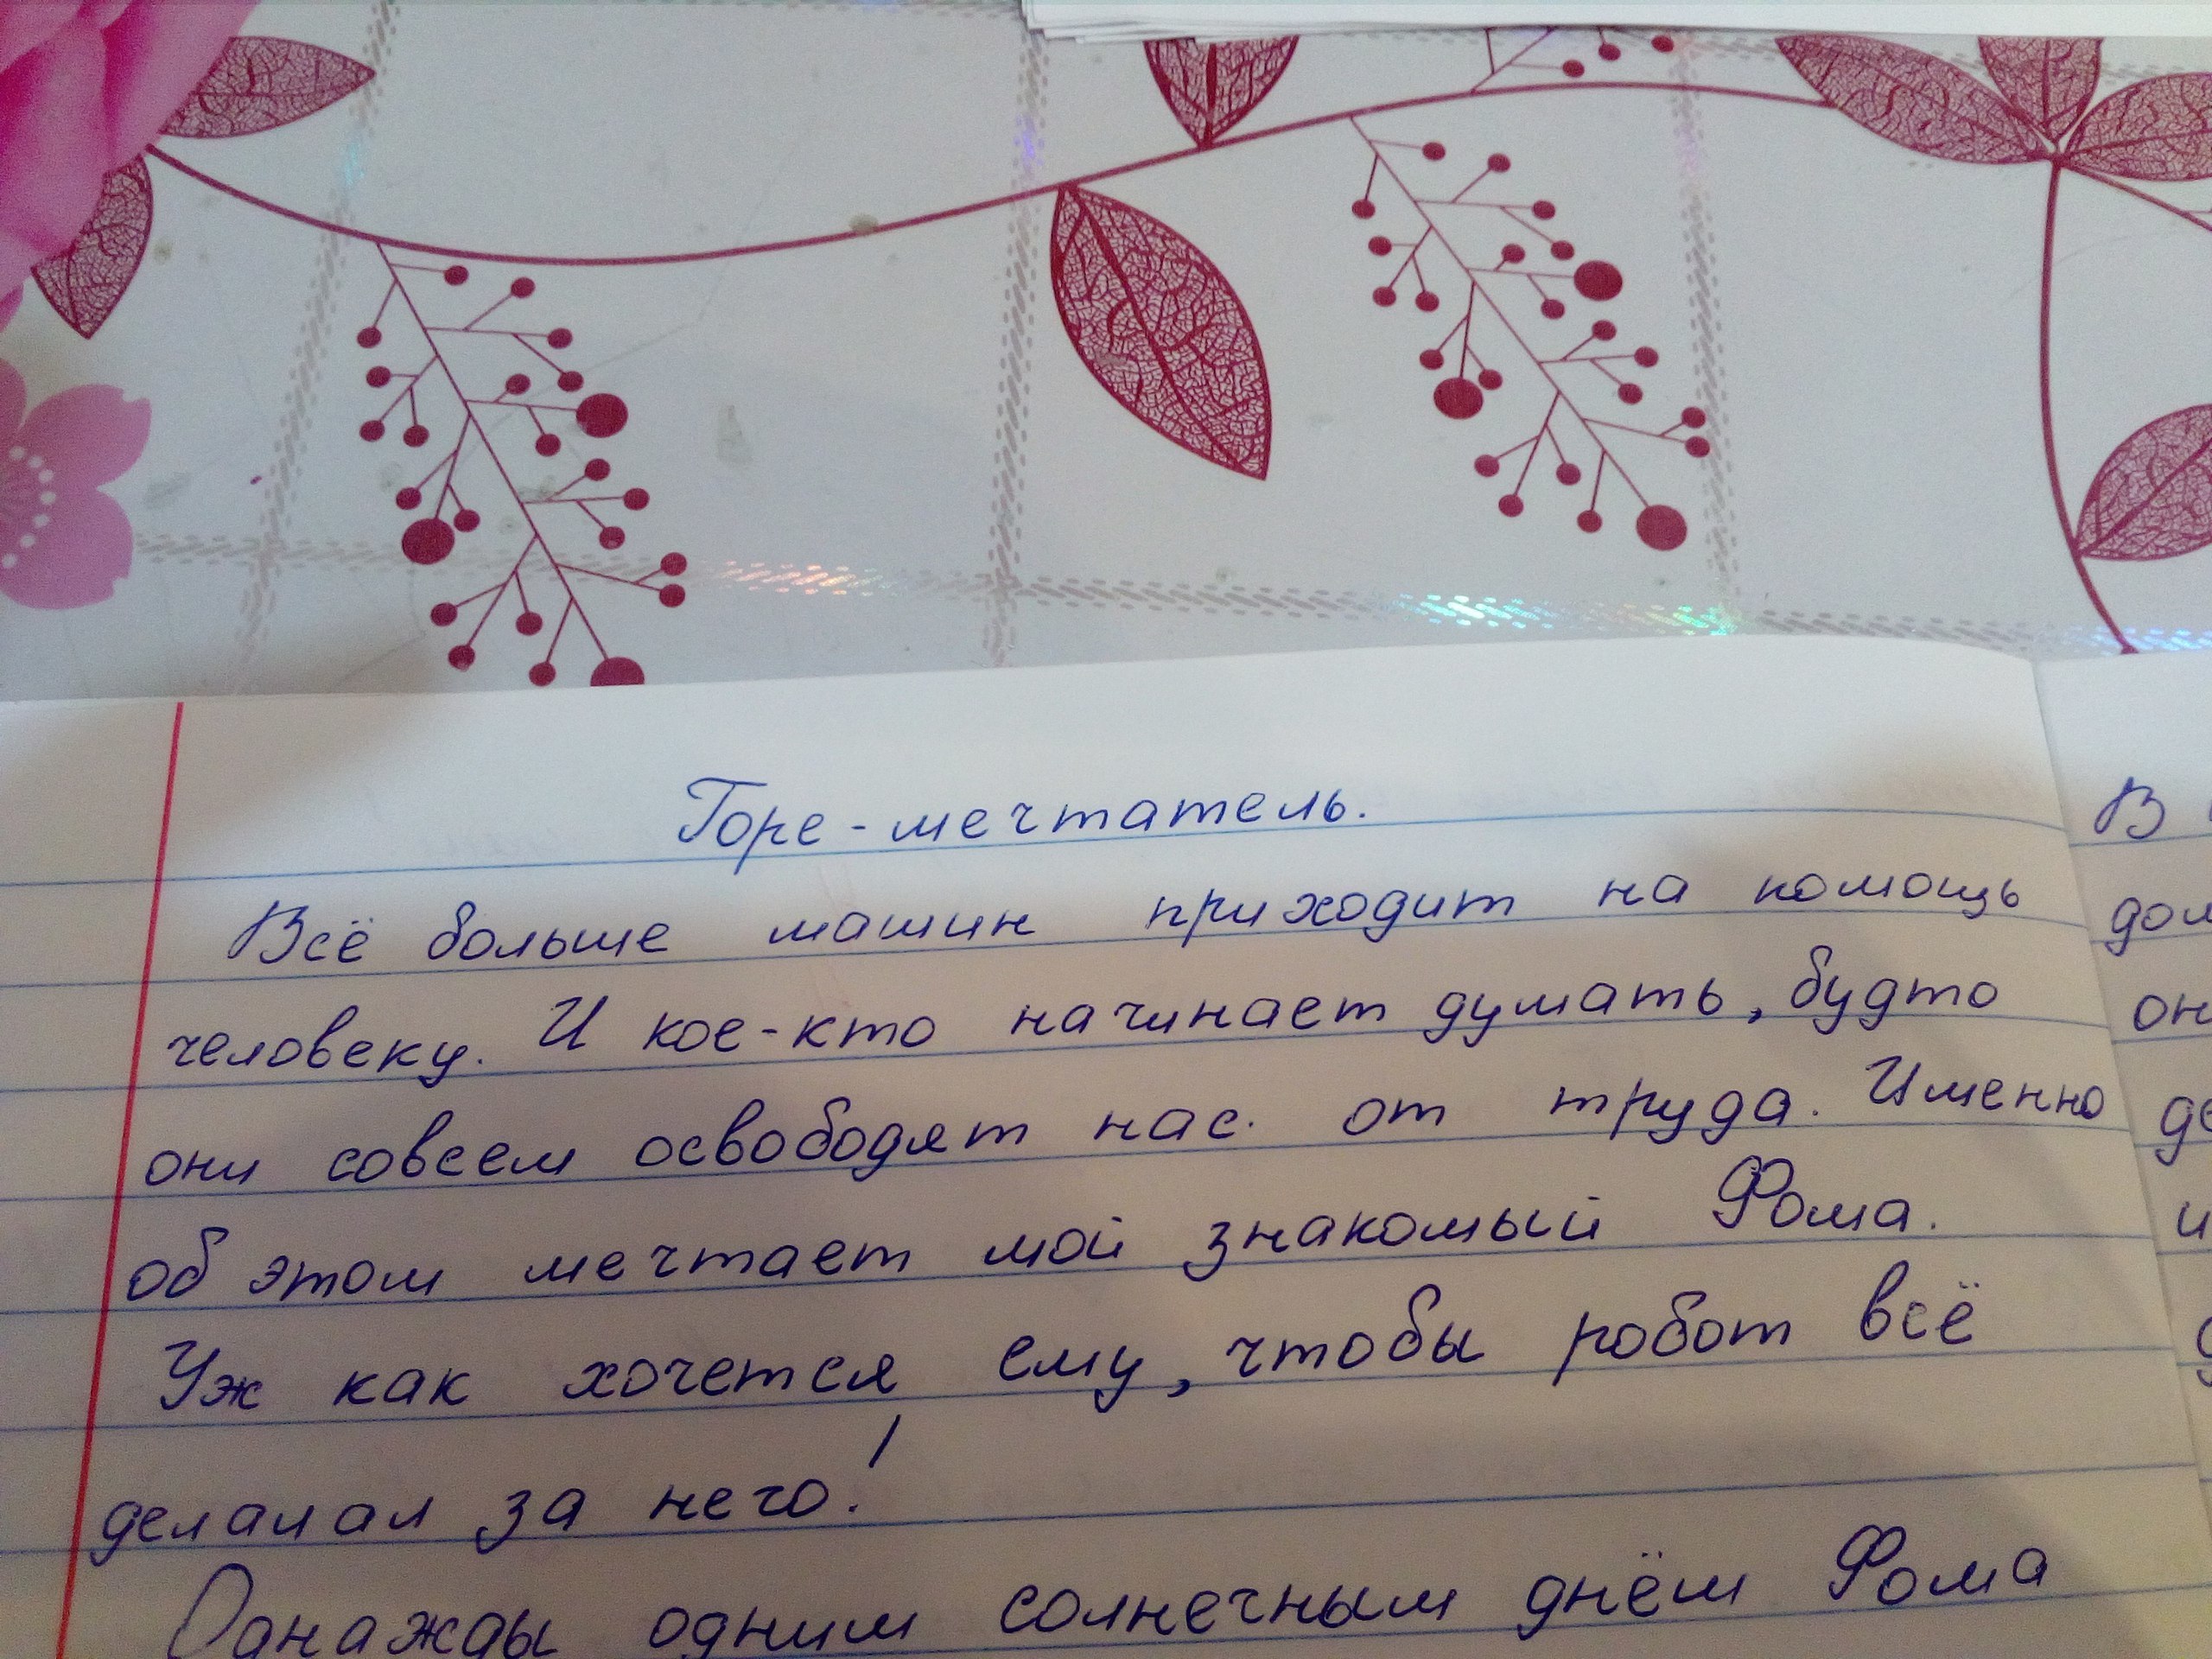 Горе-мечтатель.
Всё больше машин приходит на помощь
человеку. И кое-кто начинает думать, будто
они совсем освободят нас. от труда. Именно
об этом мечтает мой знакомый Фома.
Уж как хочется ему, чтобы робот всё
делалал за него!
Однажды одним солнечным днём Фома
В